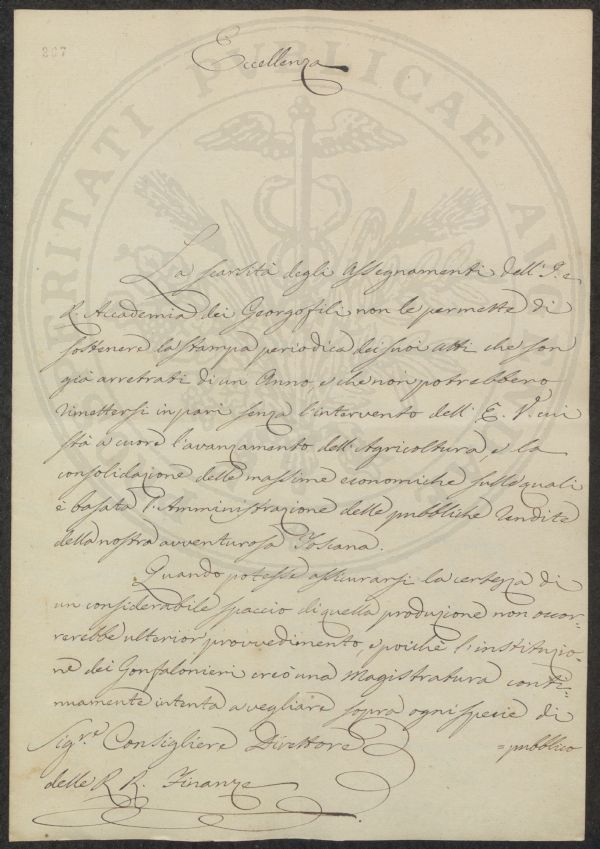 207
Eccellenza
La scarsità degli Assegnamenti dell' I. e
R. Accademia dei Georgofili non le permette di
sostenere la stampa periodica dei suoi Atti che son
già arretrati di un Anno, e che non potrebbero
rimettersi in pari senza l'intervento dell' E. V. cui
stà a cuore l'avanzamento dell'Agricoltura, e la
consolidazione delle massime economiche sulle quali
è basata l'Amministrazione delle pubbliche Rendite
della nostra avventurosa Toscana.
Quando potesse assicurarsi la certezza di
un considerabile spaccio di quella produzione non occor=
rerebbe ulterior provvedimento, e poichè l'instituzio=
ne dei Gonfalonieri creò una Magistratura conti=
nuamente intenta a vegliare sopra ogni specie di
=pubblico
Sig.re Consigliere Direttore
delle R R. Finanze
PUBLICAE